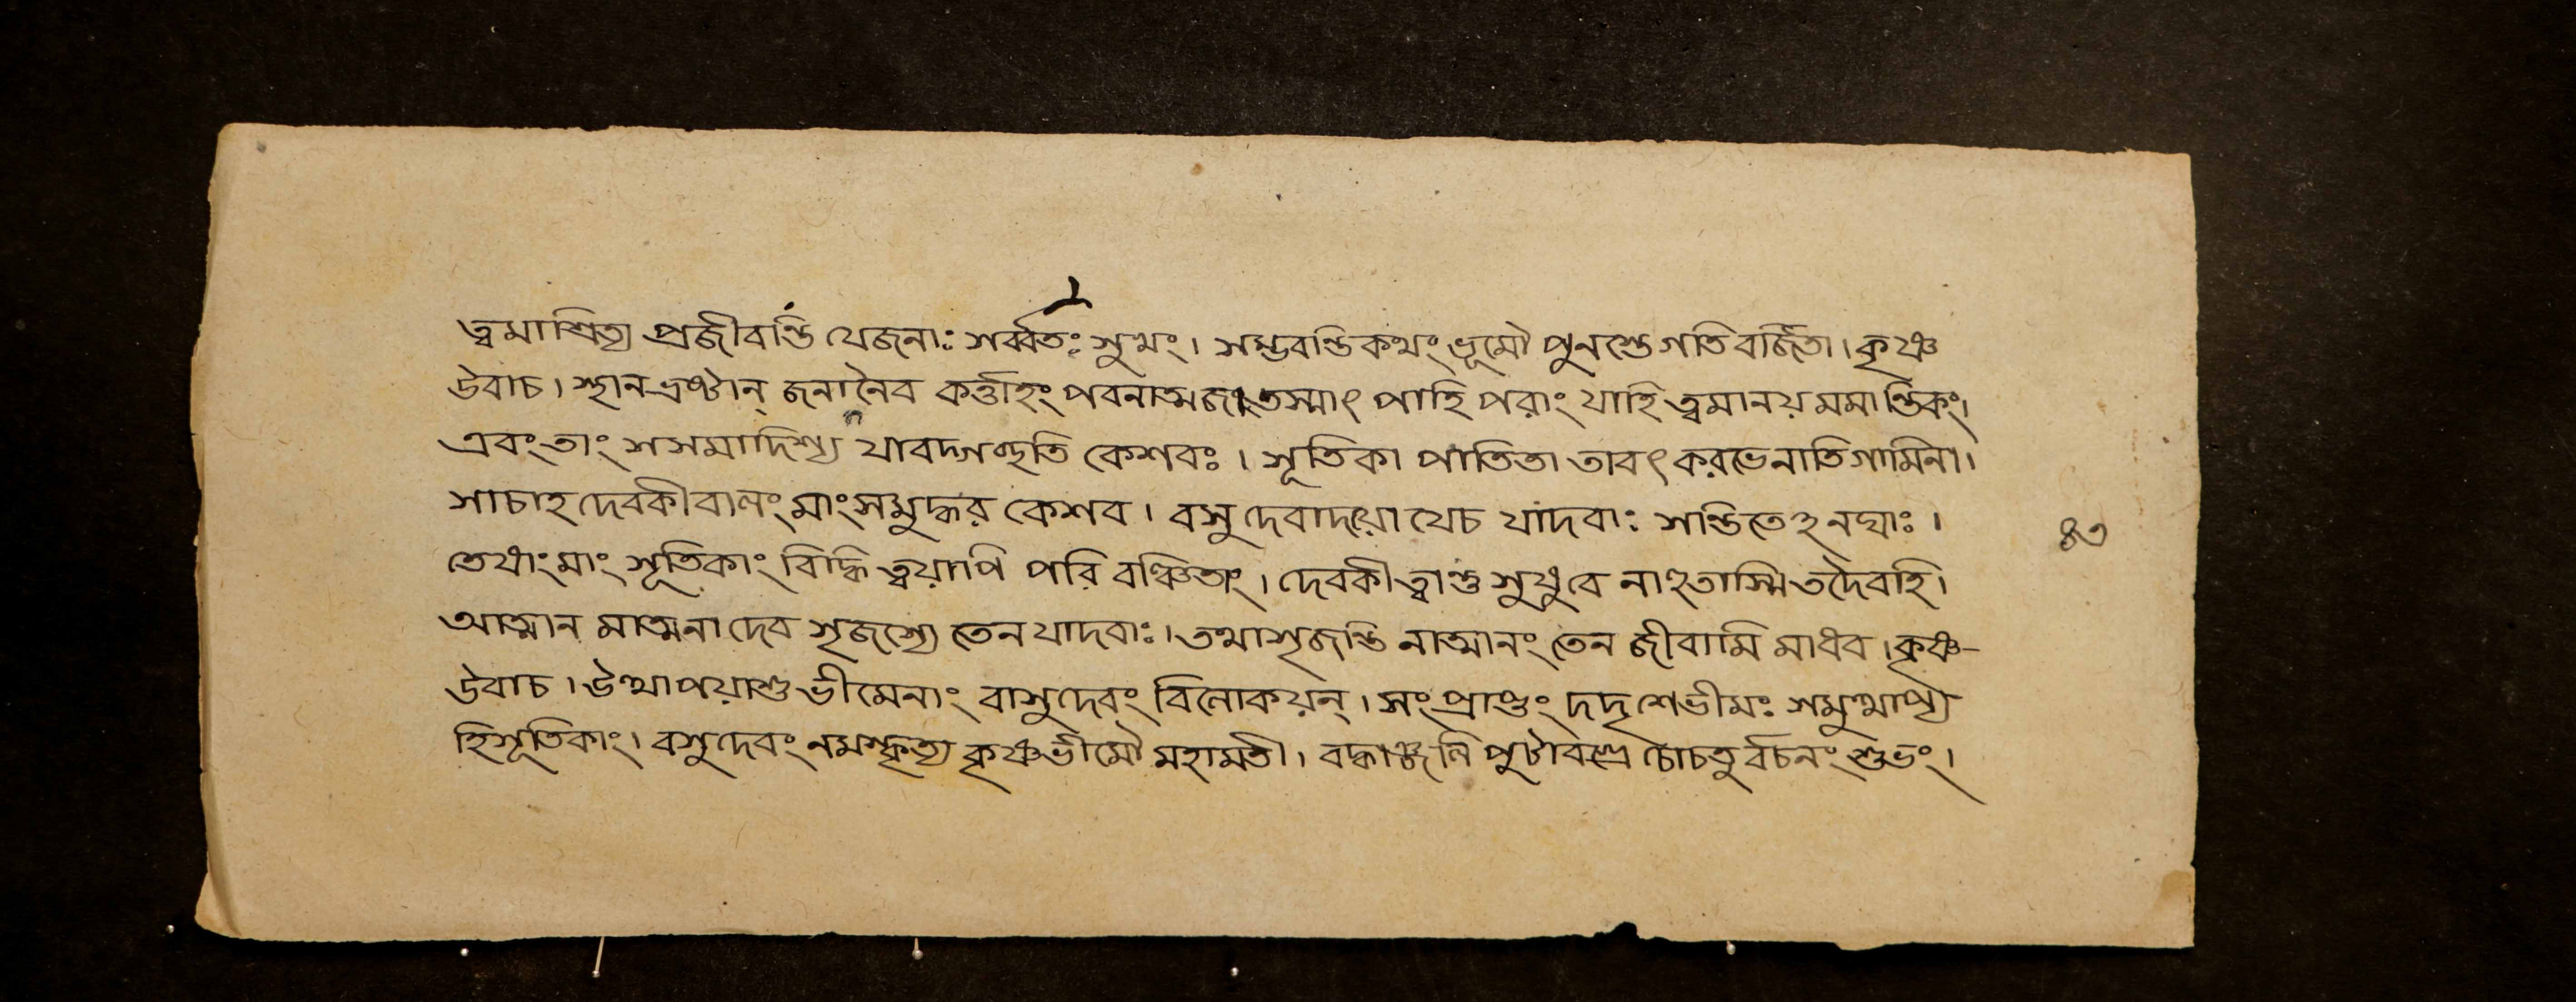 ত্বমাশ্রিত্য প্রজীবন্তি যেজনাঃ সর্ব্বতঃ সুখং। সম্ভবন্তিকথং ভূমৌ পুনস্তেগতিবর্জিতা। কৃষ্ণ
উবাচ। স্থানভ্রষ্টান্ জনানৈব কর্ত্তাহং পবনাত্মজ। তস্মাৎ পাহি পরাং যাহি ত্বমানয় মমান্তিকং।
এবংতাং সসমাদিশ্য যাবদ্গচ্ছতি কেশবঃ। সূতিকা পাতিতা তাবৎ করভেনাতিগামিনা।
সাচাহ দেবকীবালং মাংসমুদ্ধর কেশব। বসুদেবাদয়ো যেচ যাদবাঃ সন্তিতেঽনঘাঃ।
তেষাংমাং সূতিকাং বিদ্ধি ত্বয়াপি পরি বঞ্চিতাং। দেবকীত্বান্তু সুষুবে নাহূতাস্মি তদৈবহি।
আত্মান মাত্মনা দেব সৃজস্যে তেন যাদবাঃ। তথাসৃজন্তি নাত্মানং তেন জীবামি মাধব। কৃষ্ণ-
উবাচ। উত্থাপয়াশু ভীমেনাং বাসুদেবং বিলোকয়ন্। সংপ্রাপ্তং দদৃশেভীমঃ সমুত্থাপ্য
হিসূতিকাং। বসুদেবং নমস্কৃত্য কৃষ্ণভীমৌ মহামতী। বদ্ধাঞ্জলি পুটাবগ্রে চোচতুর্বচনং শুভং।
৪৩